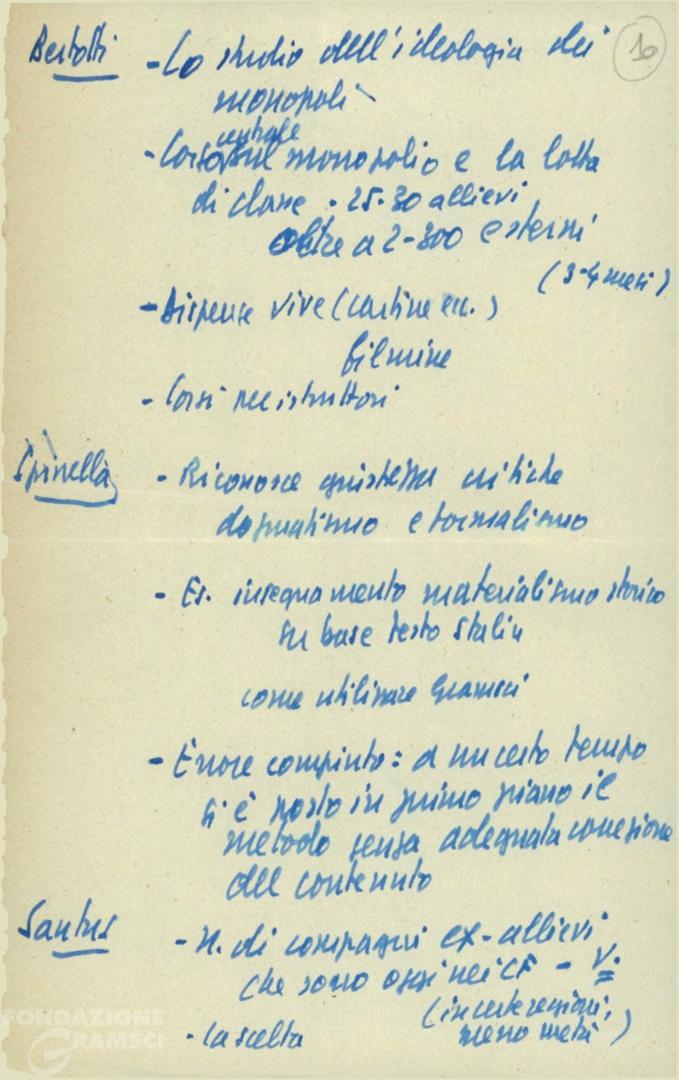 10
Bertotti - Lo studio dell'ideologia dei
monopoli
centrale
- Corso sul monopolio e la lotta
di classe - 25-30 allievi
oltre a 2-300 esterni
(3-4 mesi)
- Dispense vive (cartine ecc.)
filmine
- Corsi per istruttori
Spinella - Riconosce giustezza critiche
dogmatismo e formalismo
- Es. insegnamento materialismo storico
su base testo Stalin
come utilizzare Gramsci
- Errore compiuto: a un certo tempo
si è posto in primo piano il
metodo senza adeguata correzione
del contenuto
Santus - N. di compagni ex-allievi
che sono oggi nei CF - V.
(in certe regioni,
meno metà)
- La scelta
FONDAZIONE
GRAMSCI